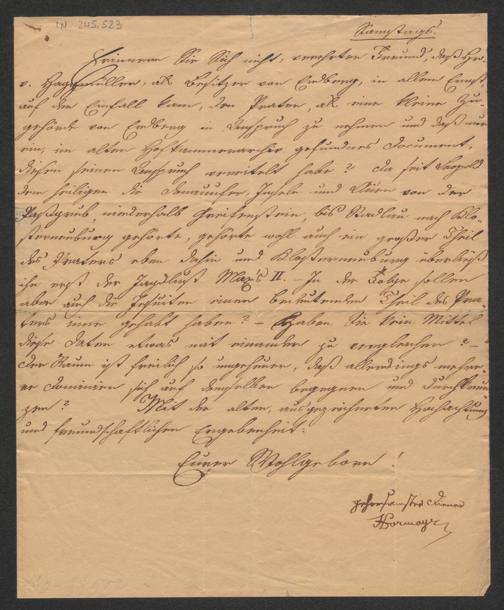 IN 245.523
Samstags.
Erinnern Sie Sich nicht, verehrter Freund, daß Hr.
v. Hagenmüller, als Besitzer von Erdberg, in allem Ernst
auf den Einfall kam, den Prater, als eine kleine Zu-
gehörde von Erdberg in Anspruch zu nehmen und daß nur
ein, im alten Hofkammerarchiv gefundenes Document,
diesen seinen Anspruch vereitelt habe? Da seit Leopold
dem Heiligen die Donauufer, Inseln und Auen von der
niederhalb Greifenstein, bis Stadlau nach Klo-
sterneuburg gehörte, gehörte wohl auch ein großer Theil
des Praters eben dahin und Klosterneuburg überließ
ihn erst der Jagdlust Maxs II. – In der Folge sollen
aber auch die Jesuiten einen bedeutenden Theil des Pra-
ters inne gehabt haben? – Haben Sie kein Mittel
diese Daten etwas mit einander zu vergleichen? –
Der Raum ist freilich so ungeheuer, daß allerdings mehre-
re Dominien sich auf demselben begegnen und
Mit der alten, ausgezeichneten Hochachtung
und freundschaftlichen Ergebenheit:
Euer Wohlgeboren!
gehorsamster Diener
Hormayr